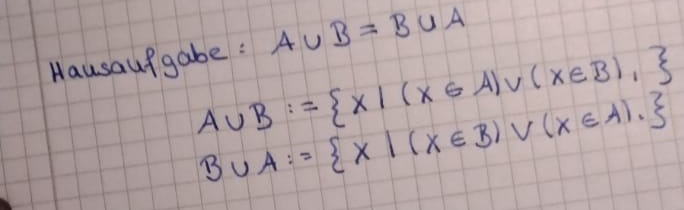 Hausaufgabe: A ∪ B = B ∪ A
A ∪ B := { x | (x ∈ A) ∨ (x ∈ B). }
B ∪ A := { x | (x ∈ B) ∨ (x ∈ A). }